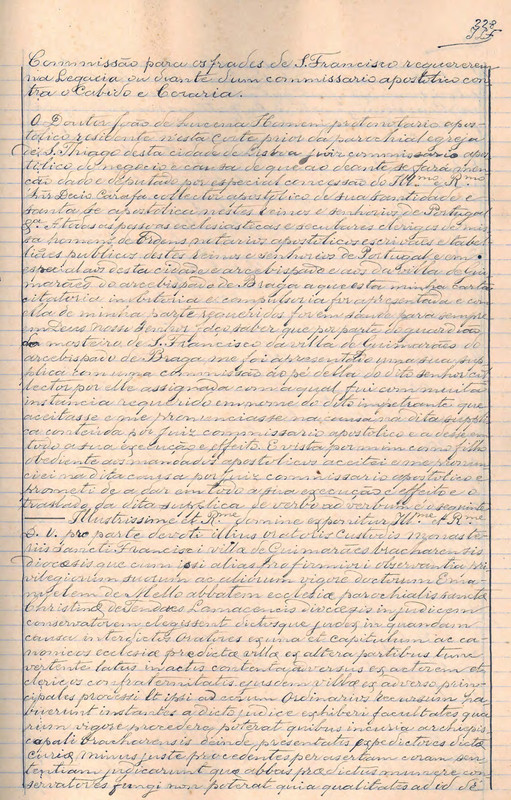 223
Commissão para os frades de S. Francisco requererem
na Legacia ou diante d'um commissario apostolico con
tra o Cabido e Coraria.
O Doutor João de Lucena Homem protonotario apos-
tolico residente n'esta corte prior da parochial egreja
de S. Thiago desta cidade de Lisboa juiz commissario apos
tolico do negocio e causa de que ao deante se fará men
ção dado e deputado por especial concessão do Ill.mo e R.mo
Snr Decio Carafa collector apostolico de sua santidade e
santa sé apostolica nestes reinos e senhorios de Portugal
&.ª A todas as pessoas ecclesiasticas e seculares clerigos de mis
sa homens de Ordens notarios apostolicos escrivães e tabel
liães publicos destes reinos e senhorios de Portugal e em
especial aos desta cidade e arcebispado e aos da villa de Gui
marães do arcebispado de Braga a que esta minha carta
citatoria inibitoria e compulsoria for apresentada e com
ella de minha parte requeridos forem saude para sempre
em Deus Nosso Senhor faço saber que por parte do guardião
do mosteiro de S. Francisco da villa de Guimarães do
arcebispado de Braga me foi apresentado uma sua sup
plica com uma commissão ao pé della do dito senhor col
lector por elle assignada com a qual fui com muita
instancia requerido em nome do dito impetrante que
aceitasse e me pronunciasse na causa na dita suppli
ca conteuda por juiz commissario apostolico e a desse em
tudo a sua execução e effeito. E vista por mim como filho
obediente aos mandados apostolicos aceitei e me pronun
ciei na dita causa por juiz commissario apostolico e
prometi de a dar em tudo a sua execução e effeito e o
traslado da dita supplica de verbo ad verbum é o seguinte
— Illustrissime et R.me domine exponitur Ill.me et R.me
D. V. pro parte devoti illius oratoris Custodis monaste
riis Sancti Francisci villa de Guimarães bracharensis
diocesis que cum ipsi alias pro firmiori observantia pri
vilegiorum suorum ac aliorum vigore doctorum Ema
nuelem de Mello abbatem ecclesiæ parochialis sanctæ
Christinæ de Tendaes Lamacencis diocesis in judicem
conservatorem elegissent dictusque judex in quandam
causa inter dictos Oratores ex una et capitulum ac ca-
nonicos ecclesiæ predicta villæ ex altera partibus tunc
vertente latus in actis contentas adversus exactorem et
clericos confraternitatis ejusdem villæ ex adverso prin-
cipales processit et ipsi ad eorum Ordinarius recursum ha
buerunt instantes a dicto judice exhiberi facultates qua
rum vigore procedere poterat quibus in curia archiepis
copali bracharensis deinde presentatis expeditores dictæ
Curiæ minus juste procedentes per assertam eorum sen
tentiam judicarunt que abbas predictus munere con
servatores fungi non poterat quia qualitates ad id de